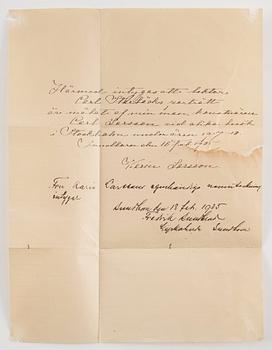 Härmed intygas att lektor
Carl Starbäcks porträtt
är målat af min man konstnären
Carl Larsson vid olika besök
i Stockholm under åren
Sundborn den 18 feb. 1935
Karin Larsson
Fru Karin Larssons egenhändiga namnteckning
intygar
Sundborn den 18 feb. 1935
Sundborn